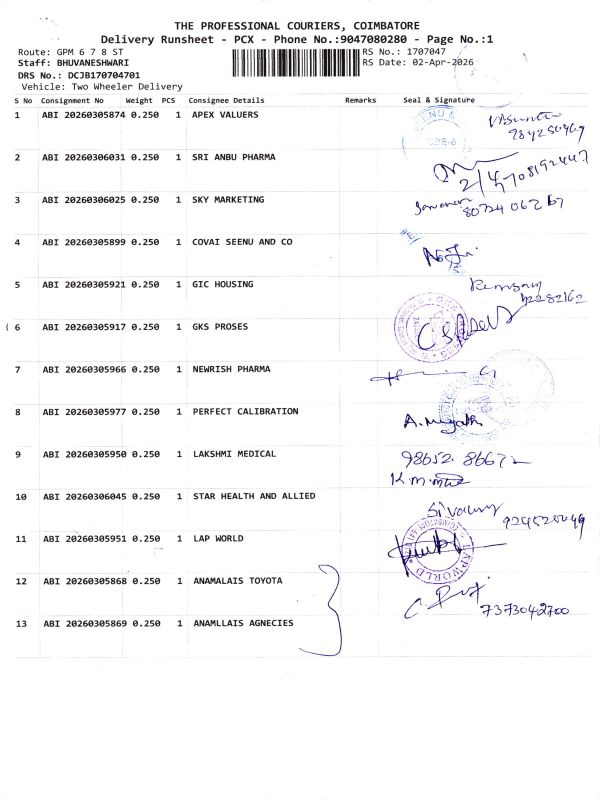 THE PROFESSIONAL COURIERS, COIMBATORE
Delivery Runsheet - PCX - Phone No.:9047080280 - Page No.:1
Route: GPM 6 7 8 ST
RS No.: 1707047
Staff: BHUVANESHWARI
RS Date: 02-Apr-2026
DRS No.: DCJB170704701
Vehicle: Two Wheeler Delivery
S No Consignment No Weight PCS Consignee Details Remarks Seal & Signature
1 ABI 20260305874 0.250 1 APEX VALUERS
2 ABI 20260306031 0.250 1 SRI ANBU PHARMA
3 ABI 20260306025 0.250 1 SKY MARKETING
4 ABI 20260305899 0.250 1 COVAI SEENU AND CO
5 ABI 20260305921 0.250 1 GIC HOUSING
6 ABI 20260305917 0.250 1 GKS PROSES
7 ABI 20260305966 0.250 1 NEWRISH PHARMA
8 ABI 20260305977 0.250 1 PERFECT CALIBRATION
9 ABI 20260305950 0.250 1 LAKSHMI MEDICAL
98652 86672
10 ABI 20260306045 0.250 1 STAR HEALTH AND ALLIED
11 ABI 20260305951 0.250 1 LAP WORLD
LAP WORLD
12 ABI 20260305868 0.250 1 ANAMALAIS TOYOTA
7373042700
13 ABI 20260305869 0.250 1 ANAMLLAIS AGNECIES